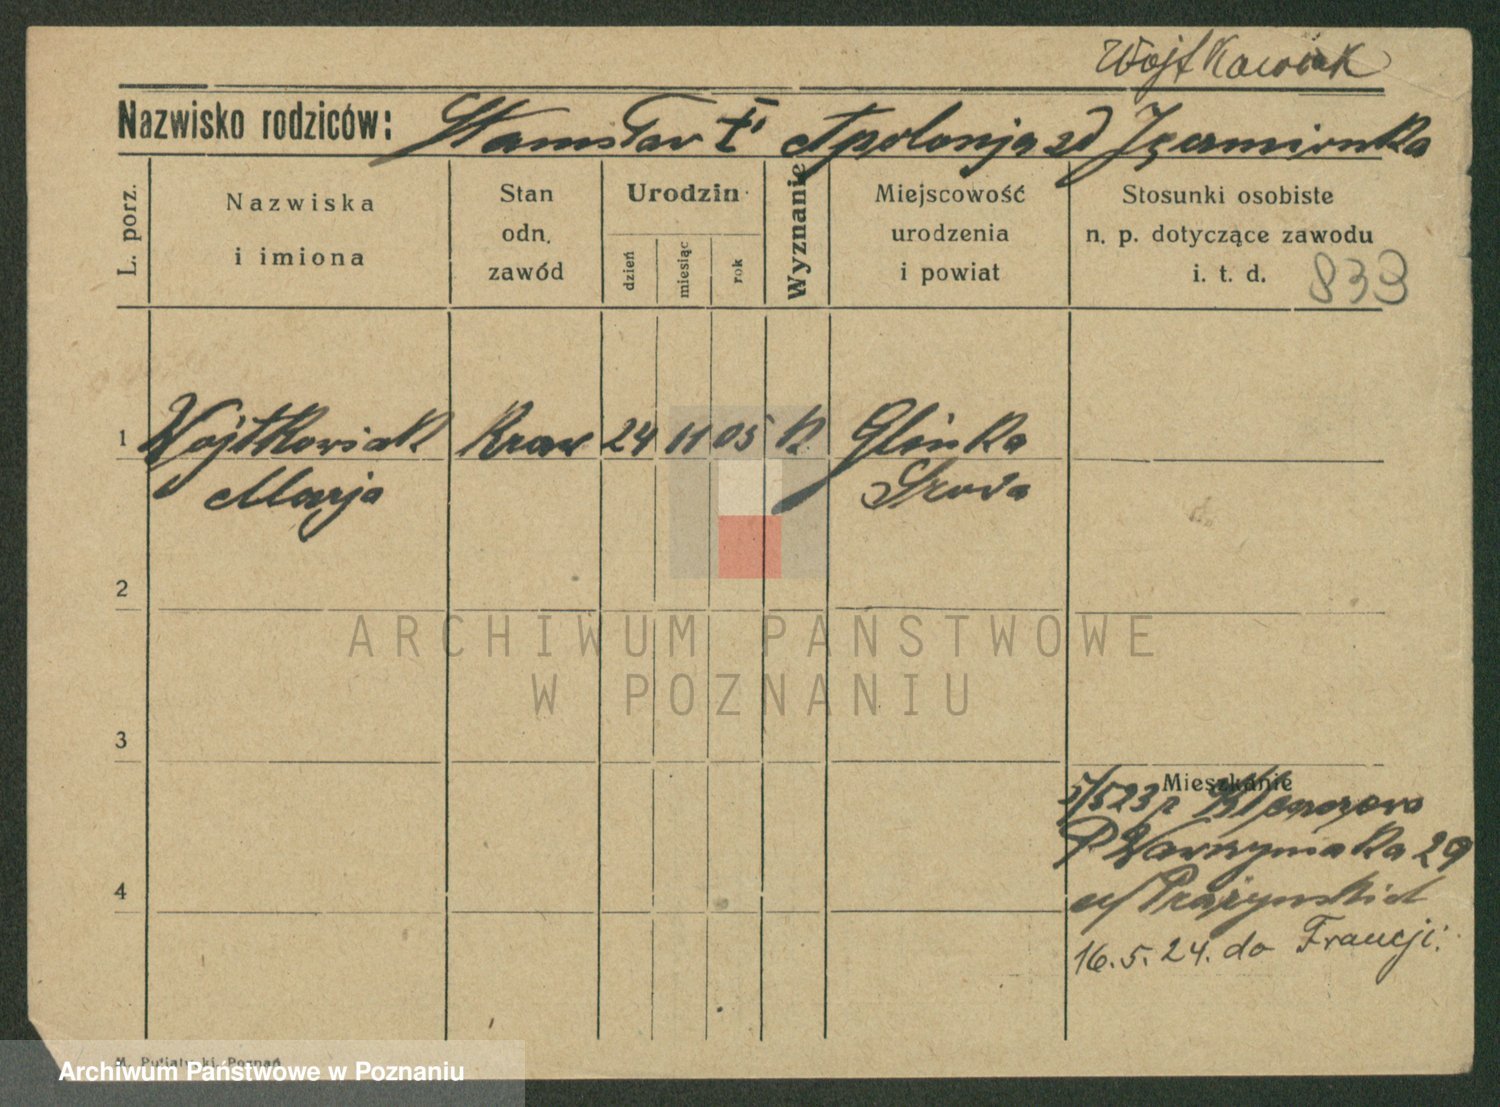 Wojtkowiak
Nazwisko rodziców: Stanisław Apolonja zd
L. porz.
Nazwiska
i imiona
Stan
odn.
zawód
Urodzin
dzień
miesiąc
rok
Wyznanie
Miejscowość
urodzenia
i powiat
Stosunki osobiste
n. p. dotyczące zawodu
i. t. d.
833
1 Wojtkowiak Kraw 24 11 05 K Glinka
Marja Środa
2
3
4
Mieszkanie
5/5 23
Wawrzyniaka 29
16.5.24. do Francji.
ARCHIWUM PAŃSTWOWE
W POZNANIU
Poznań
Archiwum Państwowe w Poznaniu